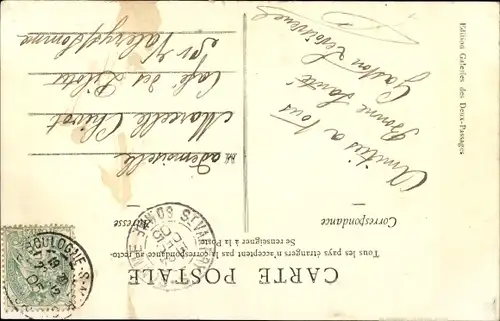 CARTE POSTALE
Tous les pays étrangers n'acceptent pas la correspondance au recto
Se renseigner à la Poste
Correspondance
Adresse
Amitiés a tous
Bonne Santé
Gaston
Mademoiselle
Marcelle
Café des Pilotes
St Valery s/ Somme
Edition Galeries des Deux-Passages
BOULOGNE-S-
ST VALERY
SOMME